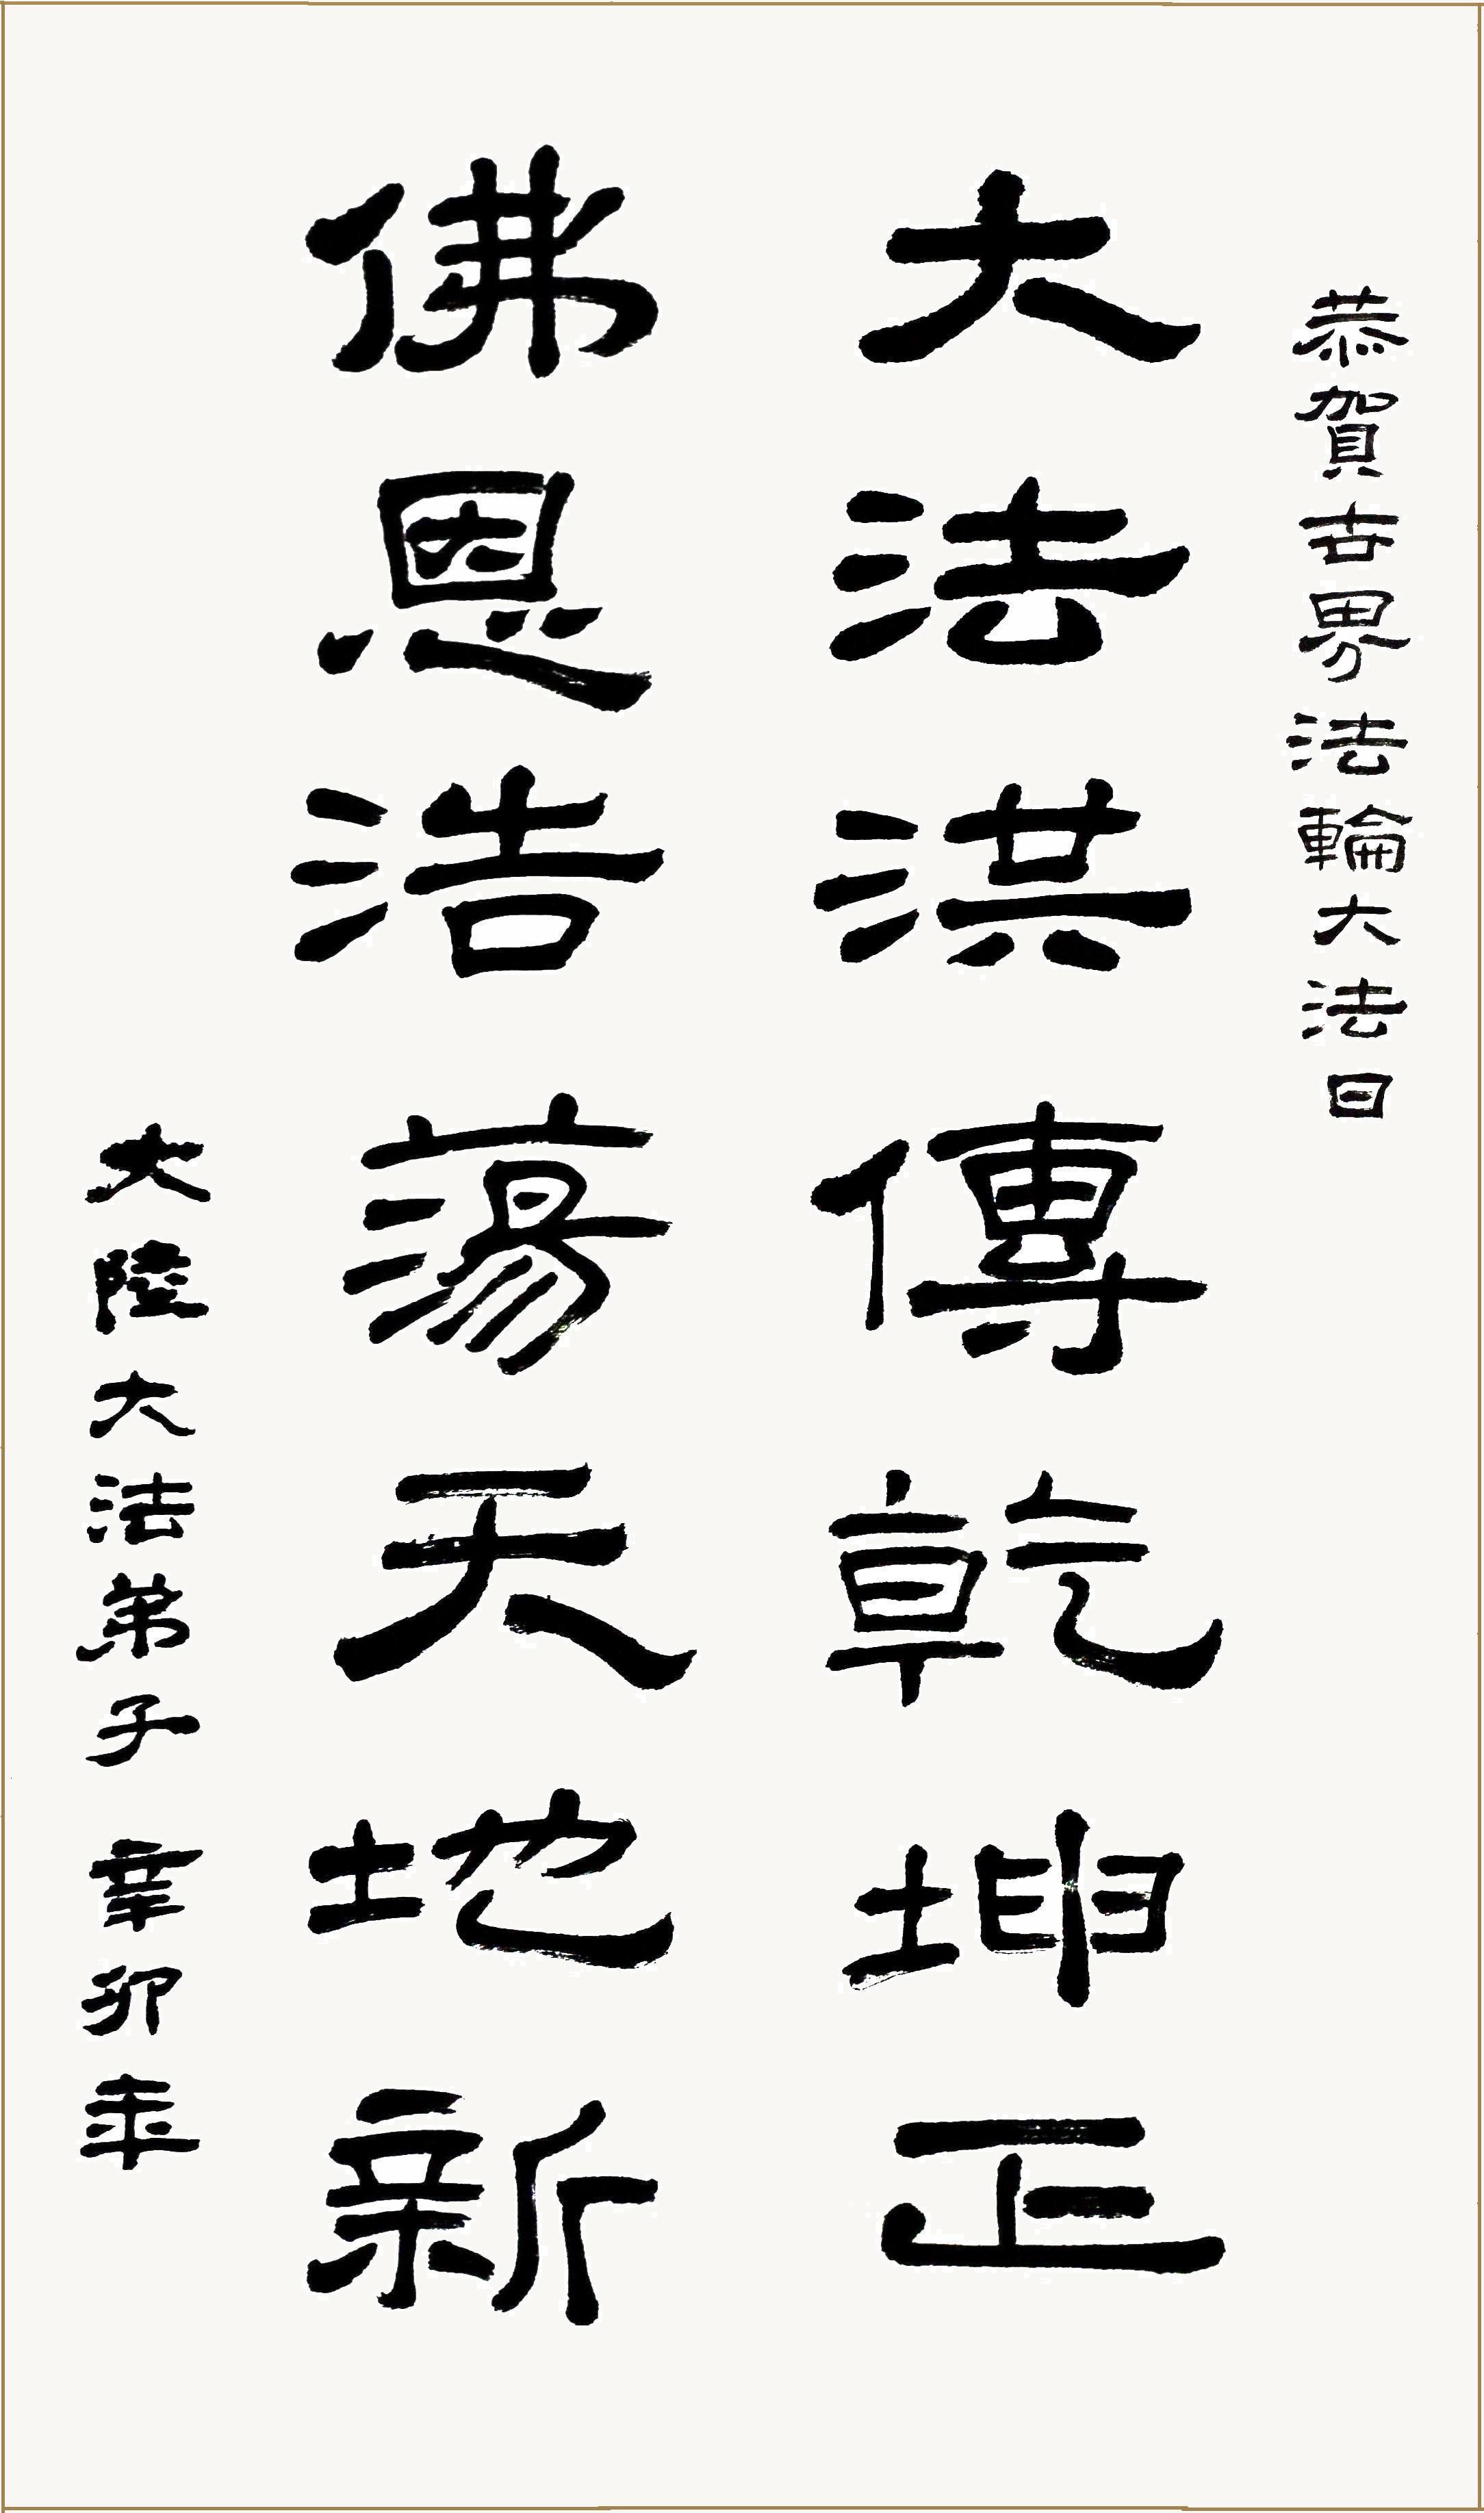 恭賀世界法輪大法日
大法洪傳乾坤正
佛恩浩蕩天地新
大陸大法弟子 辛卯年